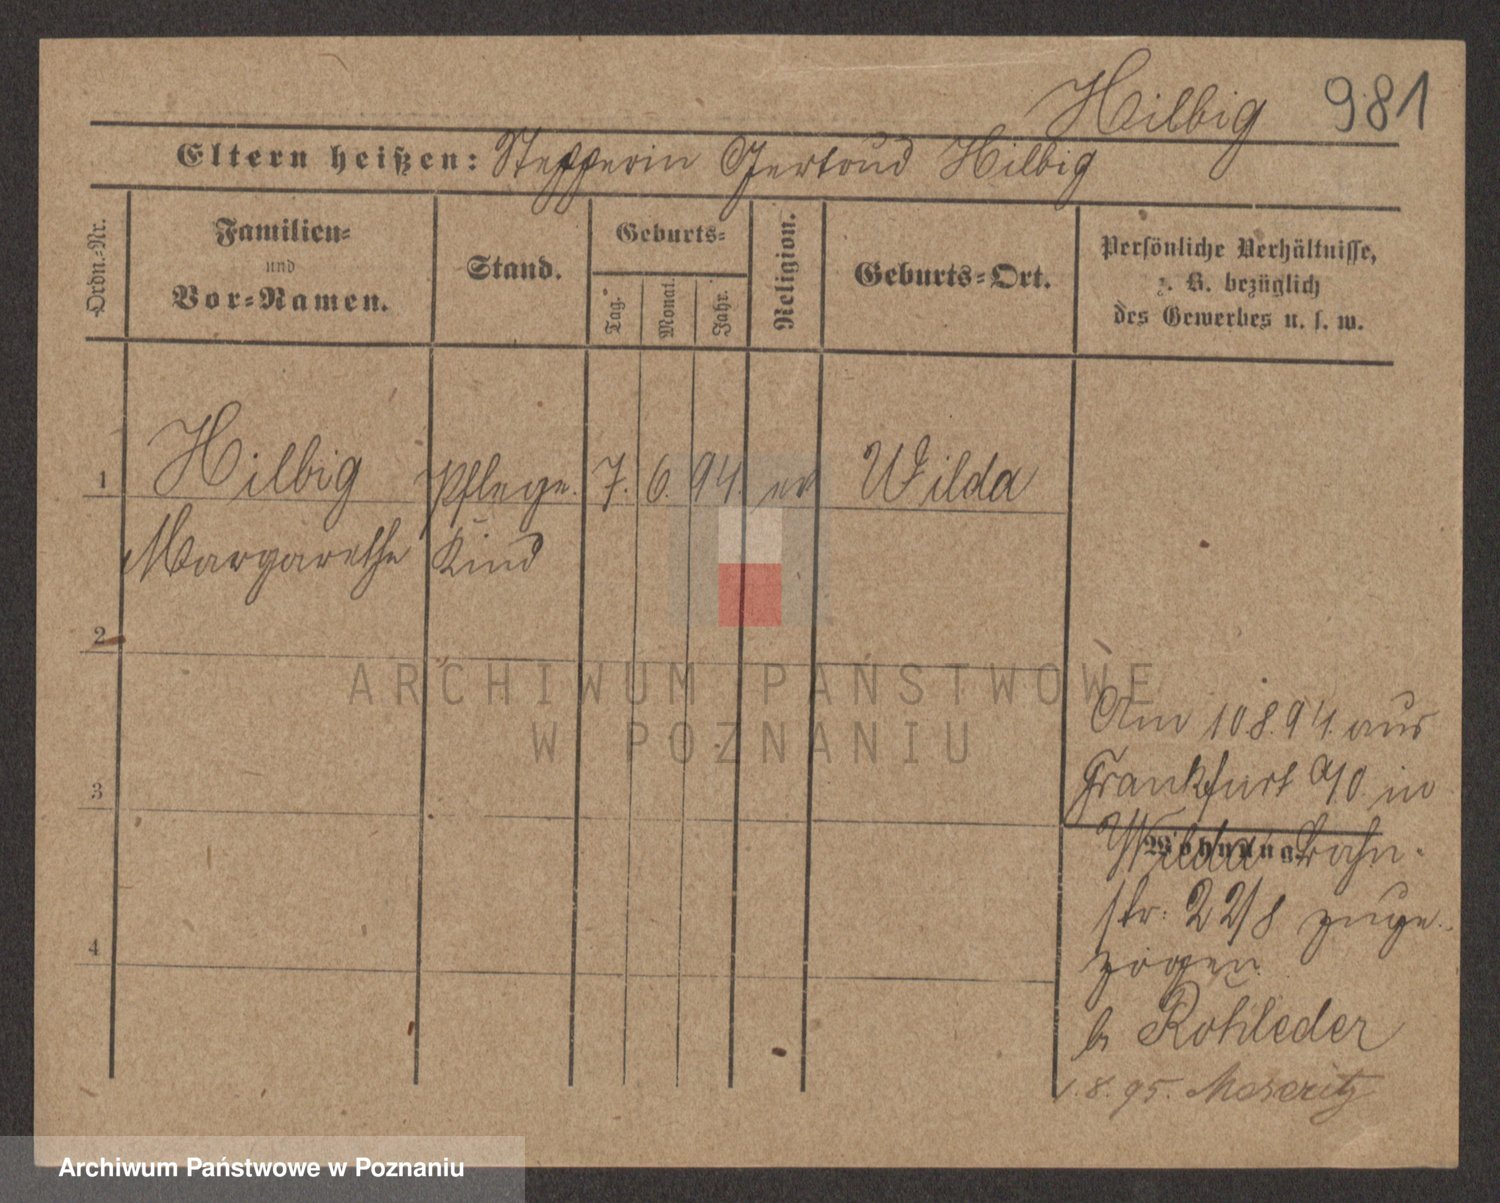 Hilbig 981
Eltern heißen: Stepperin Gertrud Hilbig
Ordn.-Nr.
Familien-
und
Vor-Namen.
Stand.
Geburts-
Tag.
Monat.
Jahr.
Religion.
Geburts-Ort.
Persönliche Verhältnisse,
z. B. bezüglich
des Gewerbes u. s. w.
1 Hilbig Pflege- 7. 6. 94. ev Wilda
Margarethe Kind
2
3
4
Am 10 8. 94. aus
Frankfurt a/O. in
Wohnung.
Wilda Bahn-
str: 22/8 zuge-
zogen
b Rohleder
1. 8. 95. Meseritz
ARCHIWUM PAŃSTWOWE
W POZNANIU
Archiwum Państwowe w Poznaniu